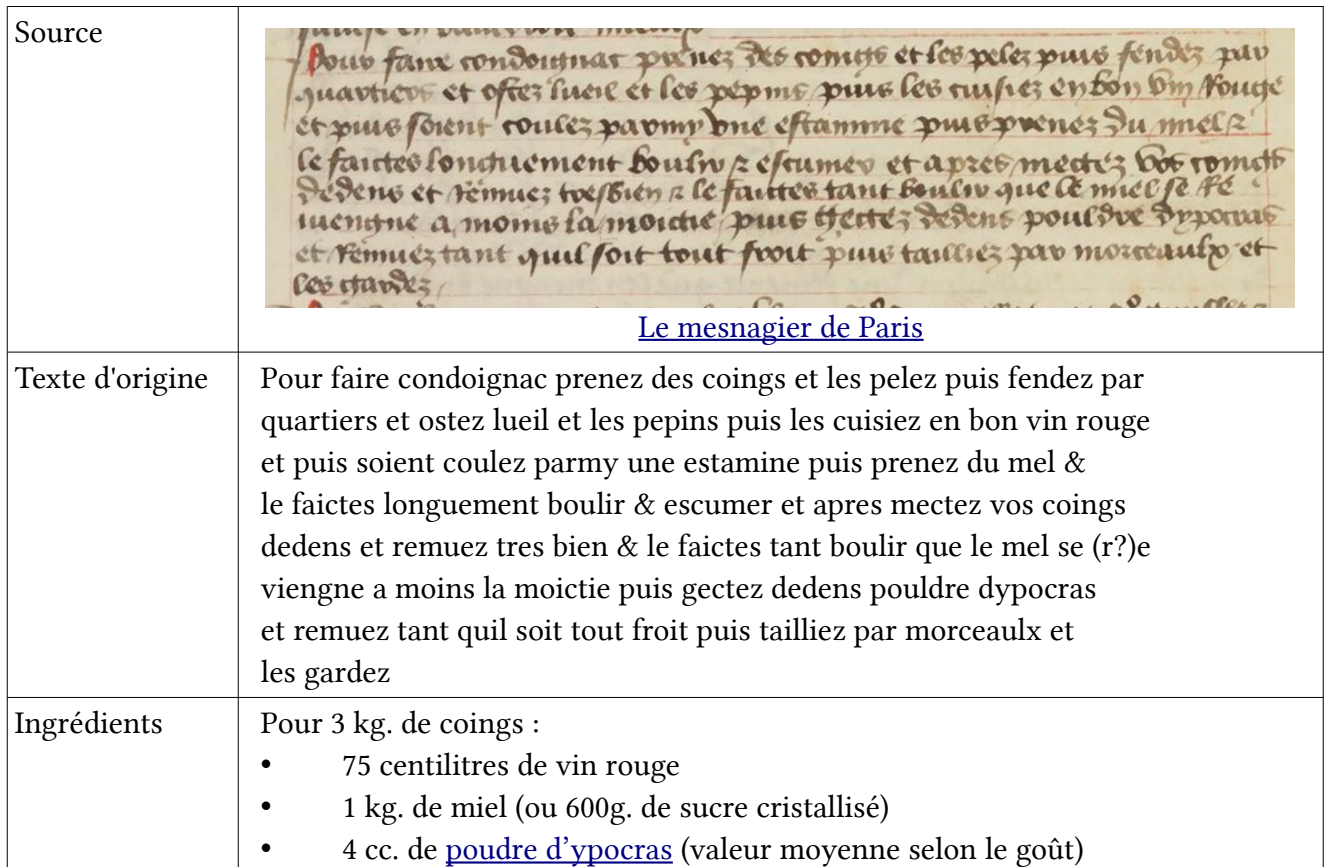 Source
Pour faire condoignac prenez des coings et les pelez puis fendez par
quartiers et ostez lueil et les pepins puis les cuisiez en bon vin Rouge
et puis soient coulez parmy vne estamine puis prenez du miel &
le faictes longuement boulir & escumer et apres mectez vos coings
dedens et Remuez tresbien & le faictes tant boulir que le miel se Re
uiengne a moins la moictie puis gectez dedens pouldre dypocras
et Remuez tant quil soit tout froit puis tailliez par morceaulx et
les gardez
Le mesnagier de Paris
Texte d'origine
Pour faire condoignac prenez des coings et les pelez puis fendez par
quartiers et ostez lueil et les pepins puis les cuisiez en bon vin rouge
et puis soient coulez parmy une estamine puis prenez du mel &
le faictes longuement boulir & escumer et apres mectez vos coings
dedens et remuez tres bien & le faictes tant boulir que le mel se (r?)e
viengne a moins la moictie puis gectez dedens pouldre dypocras
et remuez tant quil soit tout froit puis tailliez par morceaulx et
les gardez
Ingrédients
Pour 3 kg. de coings :
• 75 centilitres de vin rouge
• 1 kg. de miel (ou 600g. de sucre cristallisé)
• 4 cc. de poudre d’ypocras (valeur moyenne selon le goût)